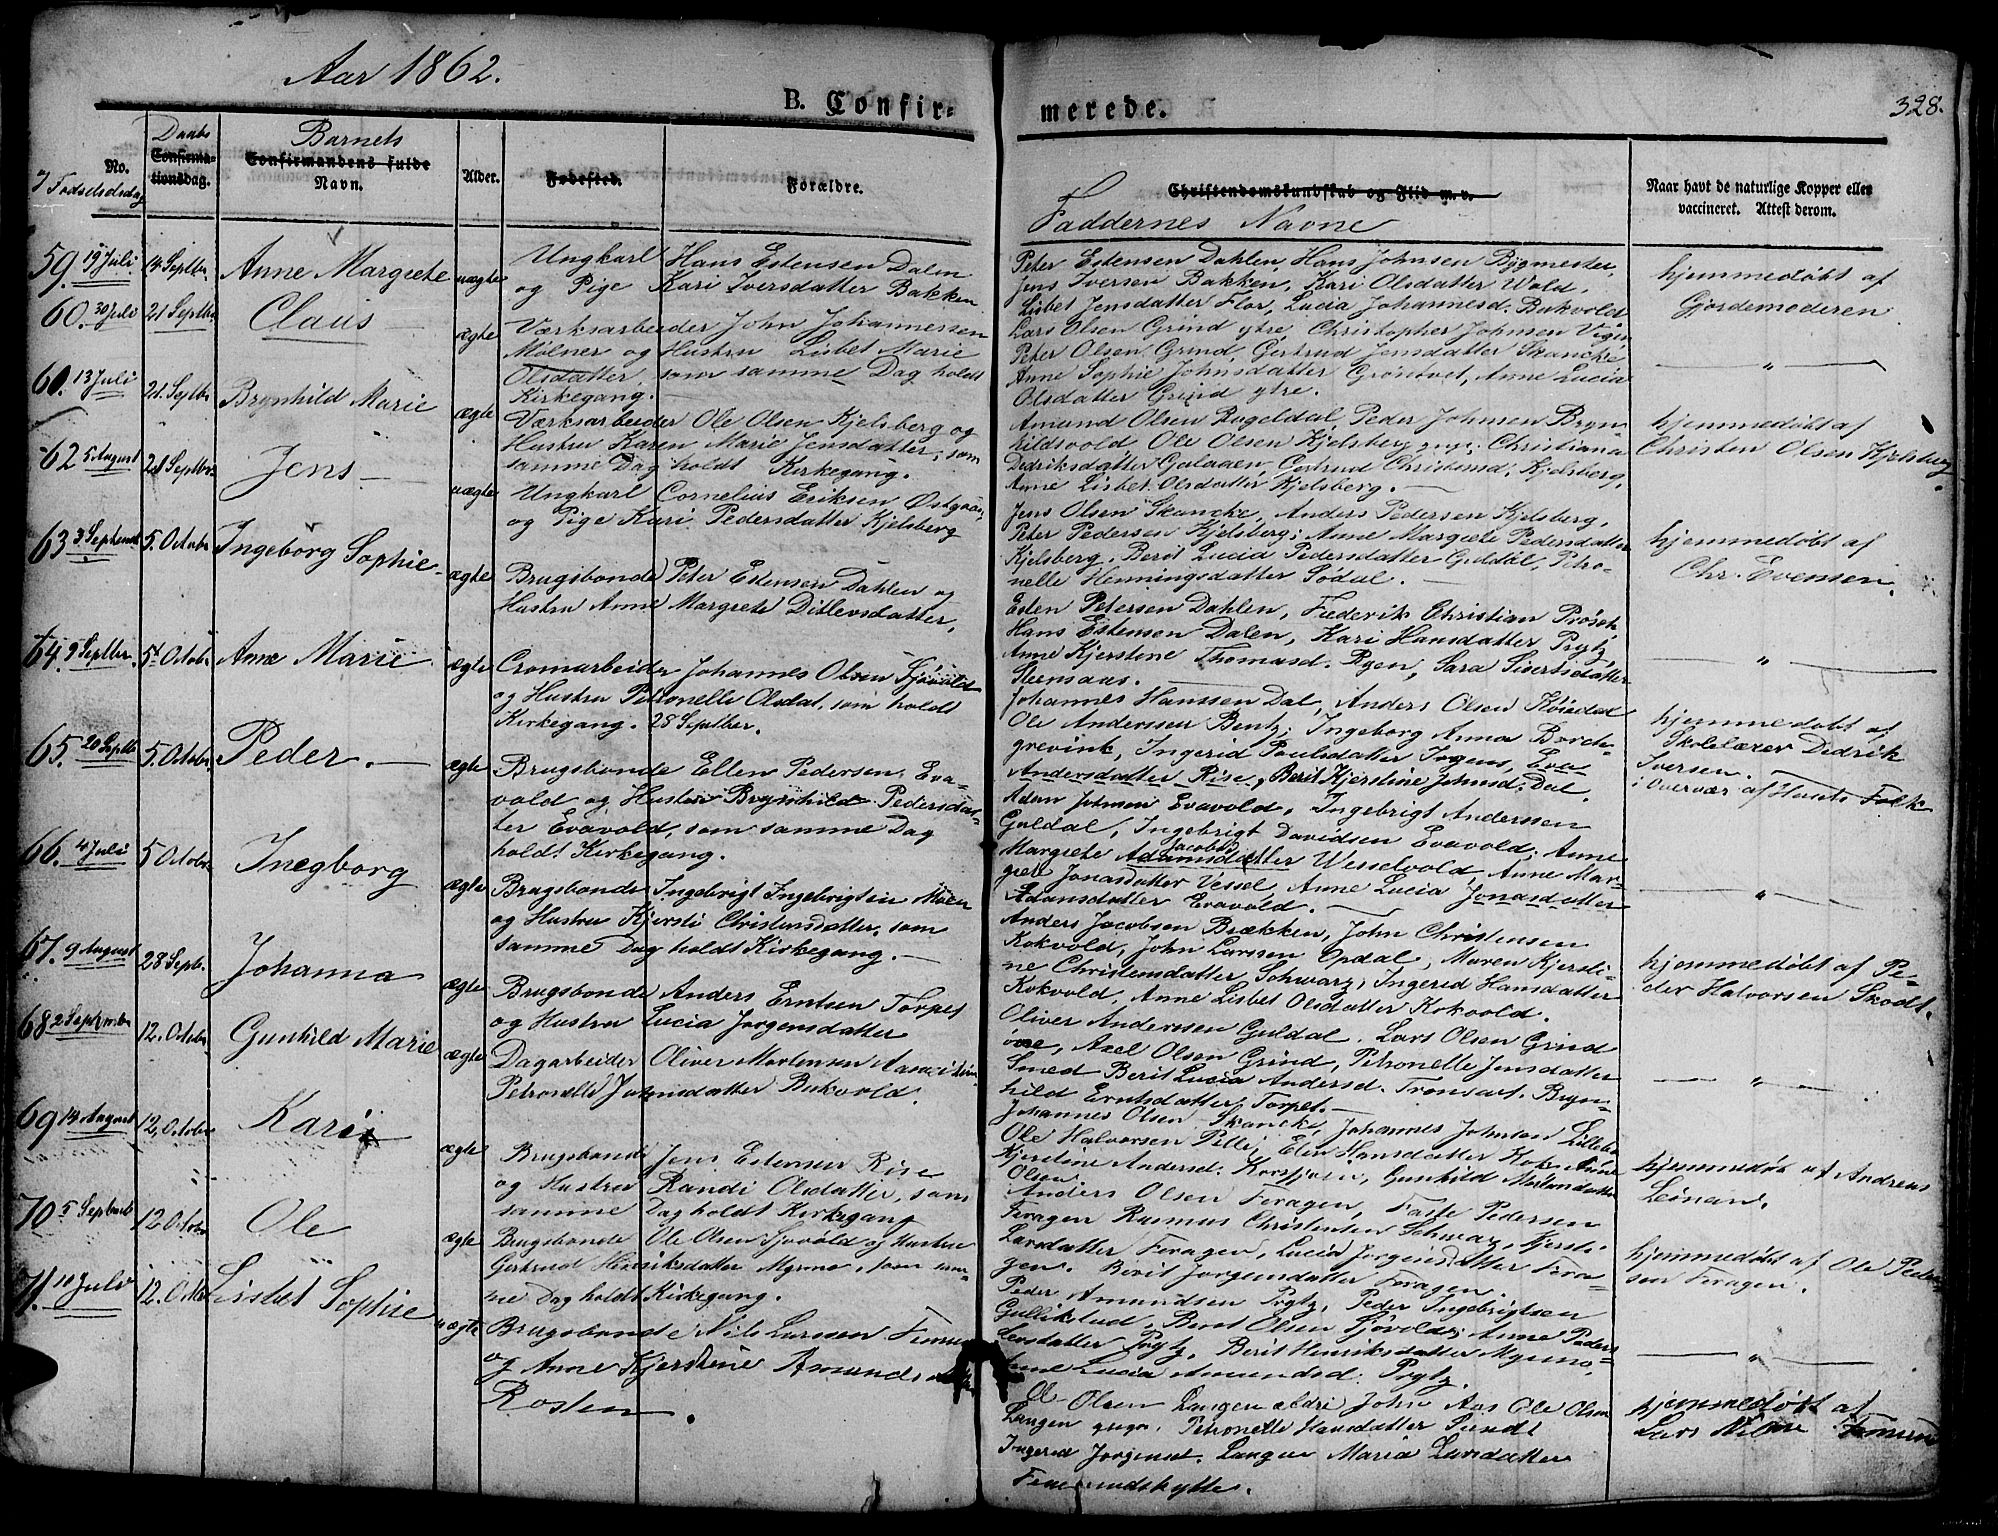 Aar 1862.
B. Confir-
merede.
328.
No.
Fødselsdag
Daabs
Confirma-
tionsdag.
Barnets
Confirmandens fulde
Navn.
Alder.
Fødested.
Forældre.
Christendomskundskab og Flid m. v.
Faddernes Navne
Naar havt de naturlige Kopper eller
vaccineret. Attest derom.
59. 19 Juli 14 Septbr. Anne Margrete uægte
Ungkarl Hans Estensen Dalen
og Pige Kari Iversdatter Bakken
Peter Estensen Dahlen, Hans Johnsen Bygmester,
Jens Iversen Bakken, Kari Olsdatter Wold,
Lisbet Jensdatter Flor, Lucia Johannesd. Bukvold
hjemmedøbt af
Gjordemoderen
60. 30 Juli 21 Septbr. Claus ægte
Værksarbeider John Johannessen
Mølner og Hustru Lisbet Marie
Olsdatter, som samme Dag holdt
Kirkegang.
Lars Olsen Grind ytre Christopher Johnsen
Peter Olsen Grind, Gertrud Jensdatter Skancke
Anne Sophie Johnsdatter Grøntvet, Anne Lucia
Olsdatter Grind ytre.
— " —
60. 13 Juli 21. Septbr Brynhild Marie ægte
Værksarbeider Ole Olsen Kjelsberg og
Hustru Karen Marie Jensdatter, som
samme Dag holdt Kirkegang.
Amund Olsen Rugeldal, Peder Johnsen Bryn
hildsvold Ole Olsen Kjelsberg yngr; Christiana
Dedriksdatter Galaaen, Gertrud Christensd, Kjelsberg,
Anne Lisbet Olsdatter Kjelsberg.
hjemmedøbt af
Christen Olsen Kjelsberg
62 5 August 21 Septbr. Jens uægte
Ungkarl Cornelius Eriksen
og Pige Kari Pedersdatter Kjelsberg
Jens Olsen Skancke, Anders Pedersen Kjelsberg,
Peter Pedersen Kjelsberg; Anne Margrete Pedersdatter
Kjelsberg, Berit Lucia Pedersdatter Guldal, Petro-
nelle Henningsdatter Sødal.
hjemmedøbt af
Chr. Evensen.
63 3 Septembr 5. Octobr Ingeborg Sophie ægte
Brugsbonde Peter Estensen Dahlen og
Hustru Anne Margrete Ditlevsdatter,
Esten Petersen Dahlen, Frederik Christian Prøsch
Hans Estensen Dalen, Kari Hansdatter Prytz,
Anne Kjerstine Thomasd. Rgen, Sara Sivertsdatter
Steensaas.
— " —
64. 9 Septbr. 5t Octobr Anne Marie ægte
Cromarbeider Johannes Olsen Sjøvold
og Hustru Petronelle Olsdat. som holdt
Kirkegang. 28 Septber.
Johannes Hanssen Dal, Anders Olsen
Ole Anderssen Bentz; Ingeborg Anna Borch-
grevink, Ingerid Poulsdatter Irgens, Eva
Andersdatter Rise, Berit Kjerstine Johnsd. Dal.
hjemmedøbt af
Skolelærer Didrik
Iversen.
i Overvær af Husets Folk
65. 20 Septb 5. Octobr. Peder. ægte
Brugsbonde Ellen Pedersen Eva-
vold og Hustru Brynhild Pedersdat-
ter Evavold, som samme Dag
holdt Kirkegang.
Adam Johnsen Evavold, Ingebrigt Anderssen
Guldal, Ingebrigt Davidsen Evavold; Anne
Jacobsd
Margrete Adamsdatter Wesselvold, Anne Mar-
grete Jonasdatter Vessel, Anne Lucia Jonasdatter
Adamsdatter Evavold.
— " —
66. 4 Juli 5 Octobr. Inegborg ægte
Brugsbonde Ingebrigt Ingebrigtsen Moen
og Hustru Kjersti Christensdatter, som
samme Dag holdt Kirkegang.
Anders Jacobsen Brækken, John Christensen
Kokvold, John Larssen Opdal, Maren Kjersti-
ne Christensdatter Schwarz, Ingerid Hansdatter
Kokvold, Anne Lisbet Olsdatter Kokvold.
hjemmedøbt af Pe-
der Halvorsen Skodt.
67. 9 August 28 Septb. Johanna ægte
Brugsbonde Anders Erntsen Torpet
og Hustru Lucia Jørgensdatter
Oliver Anderssen Guldal. Lars Olsen Grind
øvre, Axel Olsen Grind, Petronelle Jensdatter
Smed Berit Lucia Andersd. Tronsart. Bryn-
hild Erntsdatter Torpet.
— " —
68 2 Septembr 12. Octobr. Gunhild Marie ægte
Dagarbeider Oliver Mortensen
Petronelle Johnsdatter Bukvold.
Johannes Olsen Skancke, Johannes Johnsen
Ole Halvorsen Pelle; Elen Hansdatter
Kjerstine Andersd. Korssjøen, Gunhild Mortensdatter
Olsen
hjemmedøbt af Andreas
Leinan.
69 14 August 12, Octobr Kari ægte
Brugsbonde Jens Estensen Rise
og Hustru Randi Olsdatter, som
samme Dag holdt Kirkegang
Anders Olsen Feragen, Faste Pedersen
Feragen Rasmus Christensen Schwarz, Kjersti
Larsdatter Feragen, Lucia Jørgensdatter Fera-
gen. Berit Jørgensdatter Feragen.
hjemmedøbt af Ole Peder
sen Feragen.
70 5 Septembr 12 Octobr Ole ægte
Brugsbonde Ole Olsen Sjøvold og Hustru
Gertrud Henriksdatter Myrmo, som sam-
me Dag holdt Kirkegang.
Peder Amundsen Prytz, Peder Ingebrigtsen
Gullikstud, Berit Olsen Sjøvold; Anne Peders-
datter Prytz, Berit Henriksdatter Myrmo,
Anne Lucia Amundsd. Prytz.
— " —
71. 10 Juli 12. Octbr Lisbet Sophie uægte
Brugsbonde Nils Larssen
og Anne Kjerstine Amunds
Rosten.
Ole Olsen Langen ældri John Aas Ole Olsen
Langen yngr. Petronelle Hansdatter Sundt
Ingerid Jørgensd. Langen Maria Larsdatter
Femundshytte.
hjemmedøbt af
Lars Nilsen